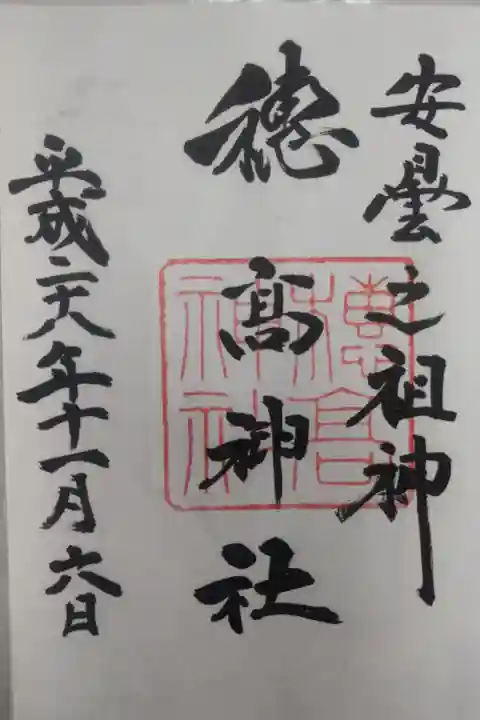 安曇之祖神
穂髙神社
平成二十八年十一月六日
穂高
神社